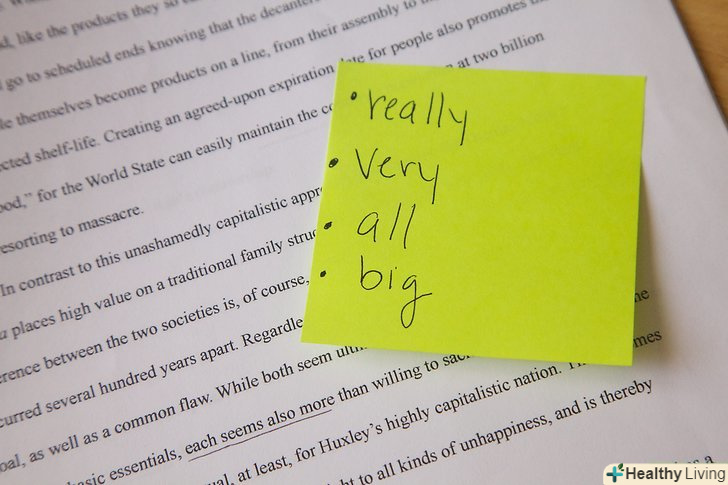 d, like the products they so
go to scheduled ends knowing that the decanter
le themselves become products on a line, from their assembly to
cted shelf-life. Creating an agreed-upon expiration date for people also promotes th
ood," for the World State can easily maintain the co at two billion
resorting to massacre.
In contrast to this unashamedly capitalistic appr
a places high value on a traditional family struc
erence between the two societies is, of course,
curred several hundred years apart. Regardle
oal, as well as a common flaw. While both seem ulti he
basic essentials, each seems also more than willing to sac mes
ual, at least, for Huxley's highly capitalistic nation.
ht to all kinds of unhappiness, and is thereby
• really
• very
• all
• big
Healthy Living